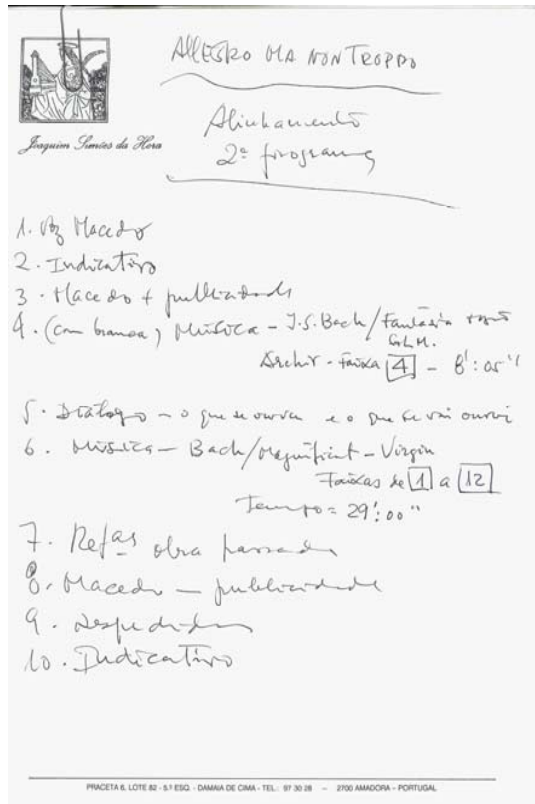 ALLEGRO MA NON TROPPO
Joaquim Simões da Hora
Alinhamento
2º programa
1. Voz Macedo
2. Indicativo
3. Macedo + publicidade
4. (com branca) Música - J.S. Bach / Fantasia
Sol M.
Archiv - Faixa 4 - 8':05''
5. Diálogo - o que se ouviu e o que se vai ouvir
6. Música - Bach / Magnificat - Virgin
Faixas de 1 a 12
Tempo = 29':00''
7. Refªs obra passada
8. Macedo - publicidade
9. Despedidas
10. Indicativo
PRACETA 6, LOTE 82 - 5.º ESQ. - DAMAIA DE CIMA - TEL.: 97 30 28 – 2700 AMADORA - PORTUGAL